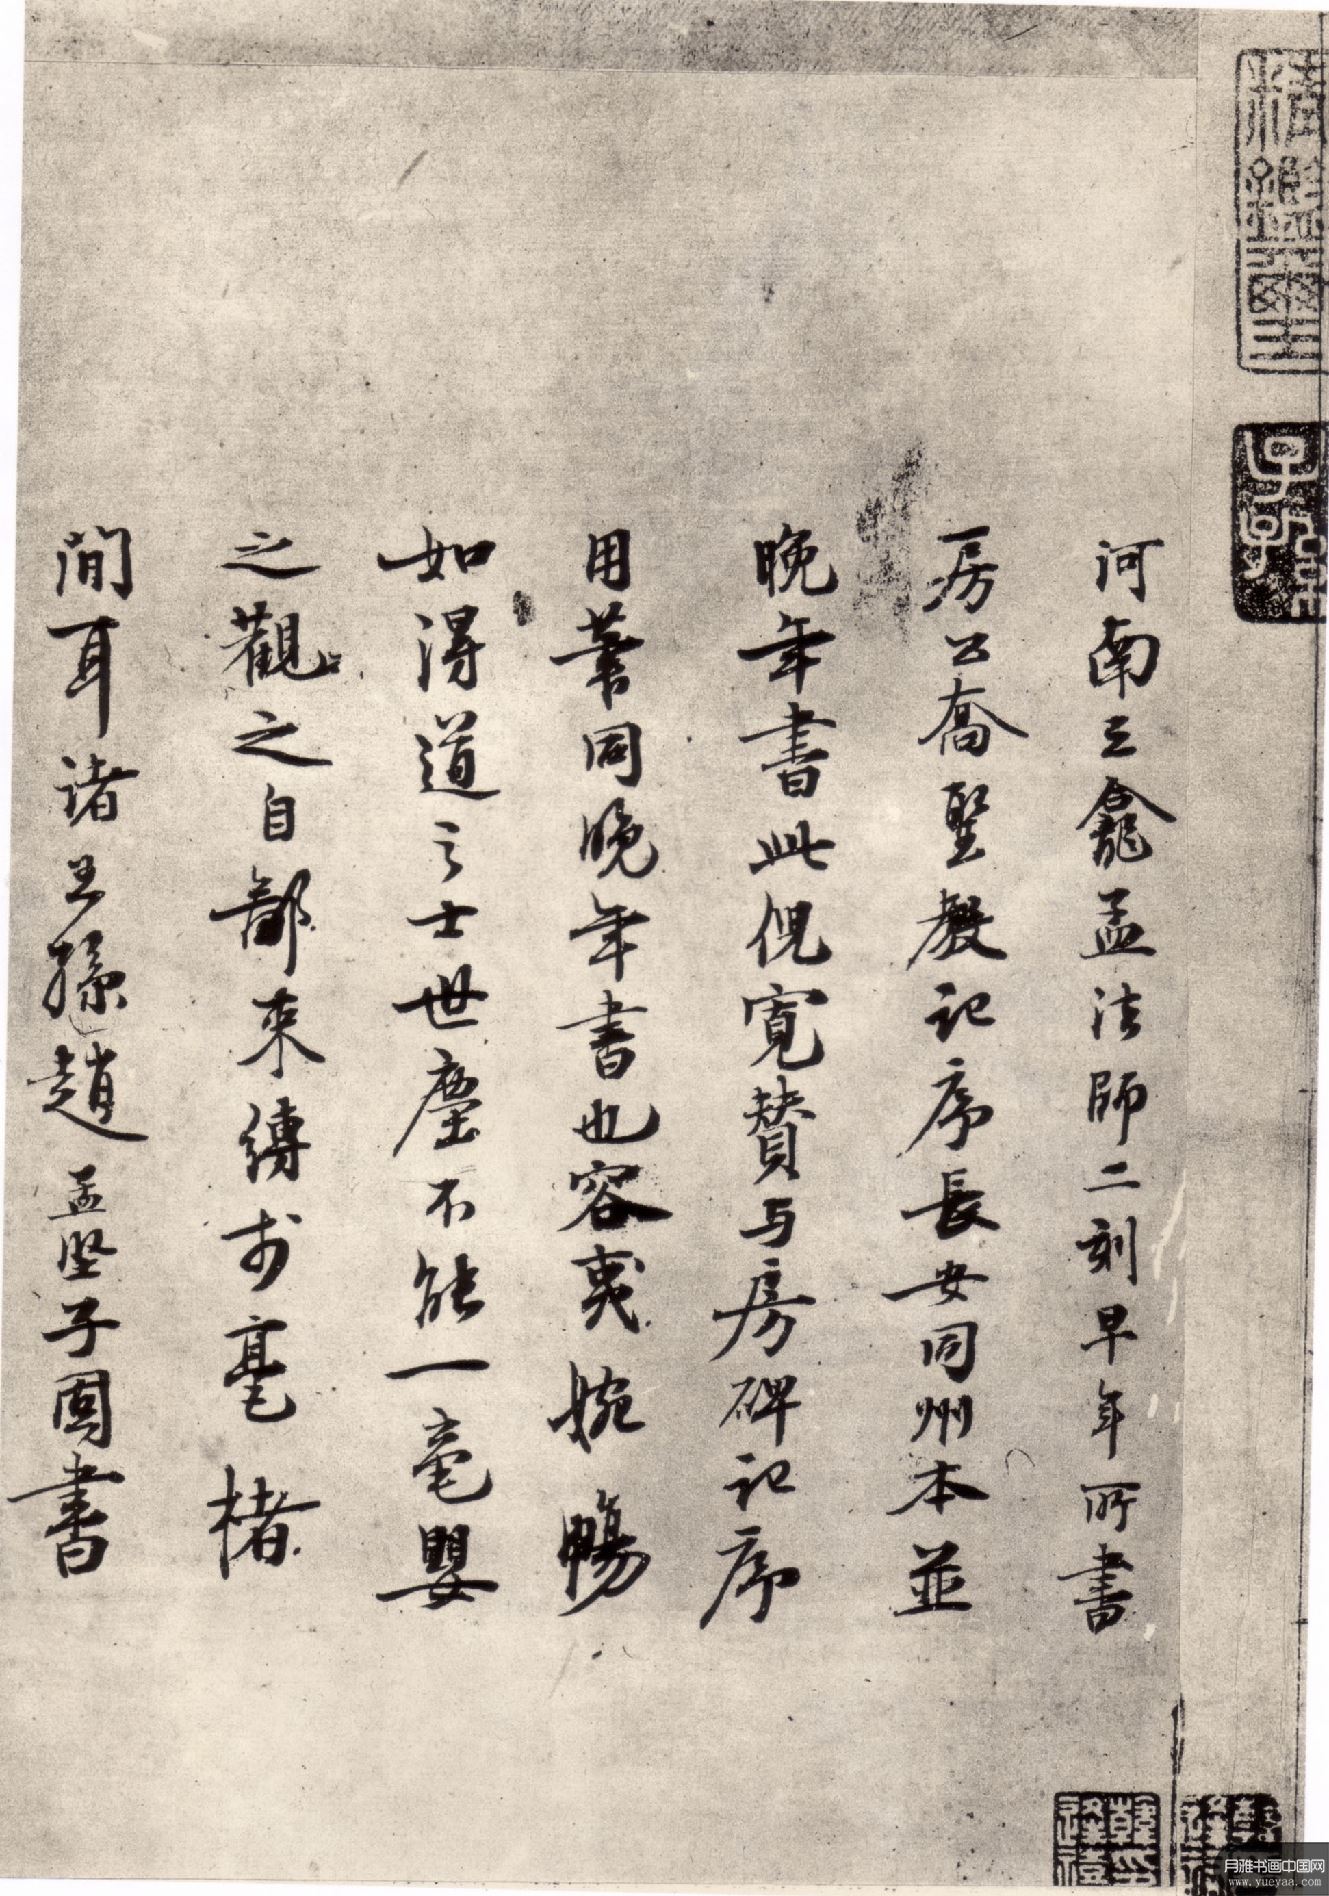 河南三龕孟法師二刻早年所書
房公喬聖教記序長安同州本並
晚年書此倪寬贊与房碑記序
用筆同晚年書也容夷婉暢
如得道之士世塵不能一毫嬰
之觀之自鄙束縛於毫楮
間耳諸王孫趙孟堅子固書
子孫
月雅书画中国网
www.yueyaa.com